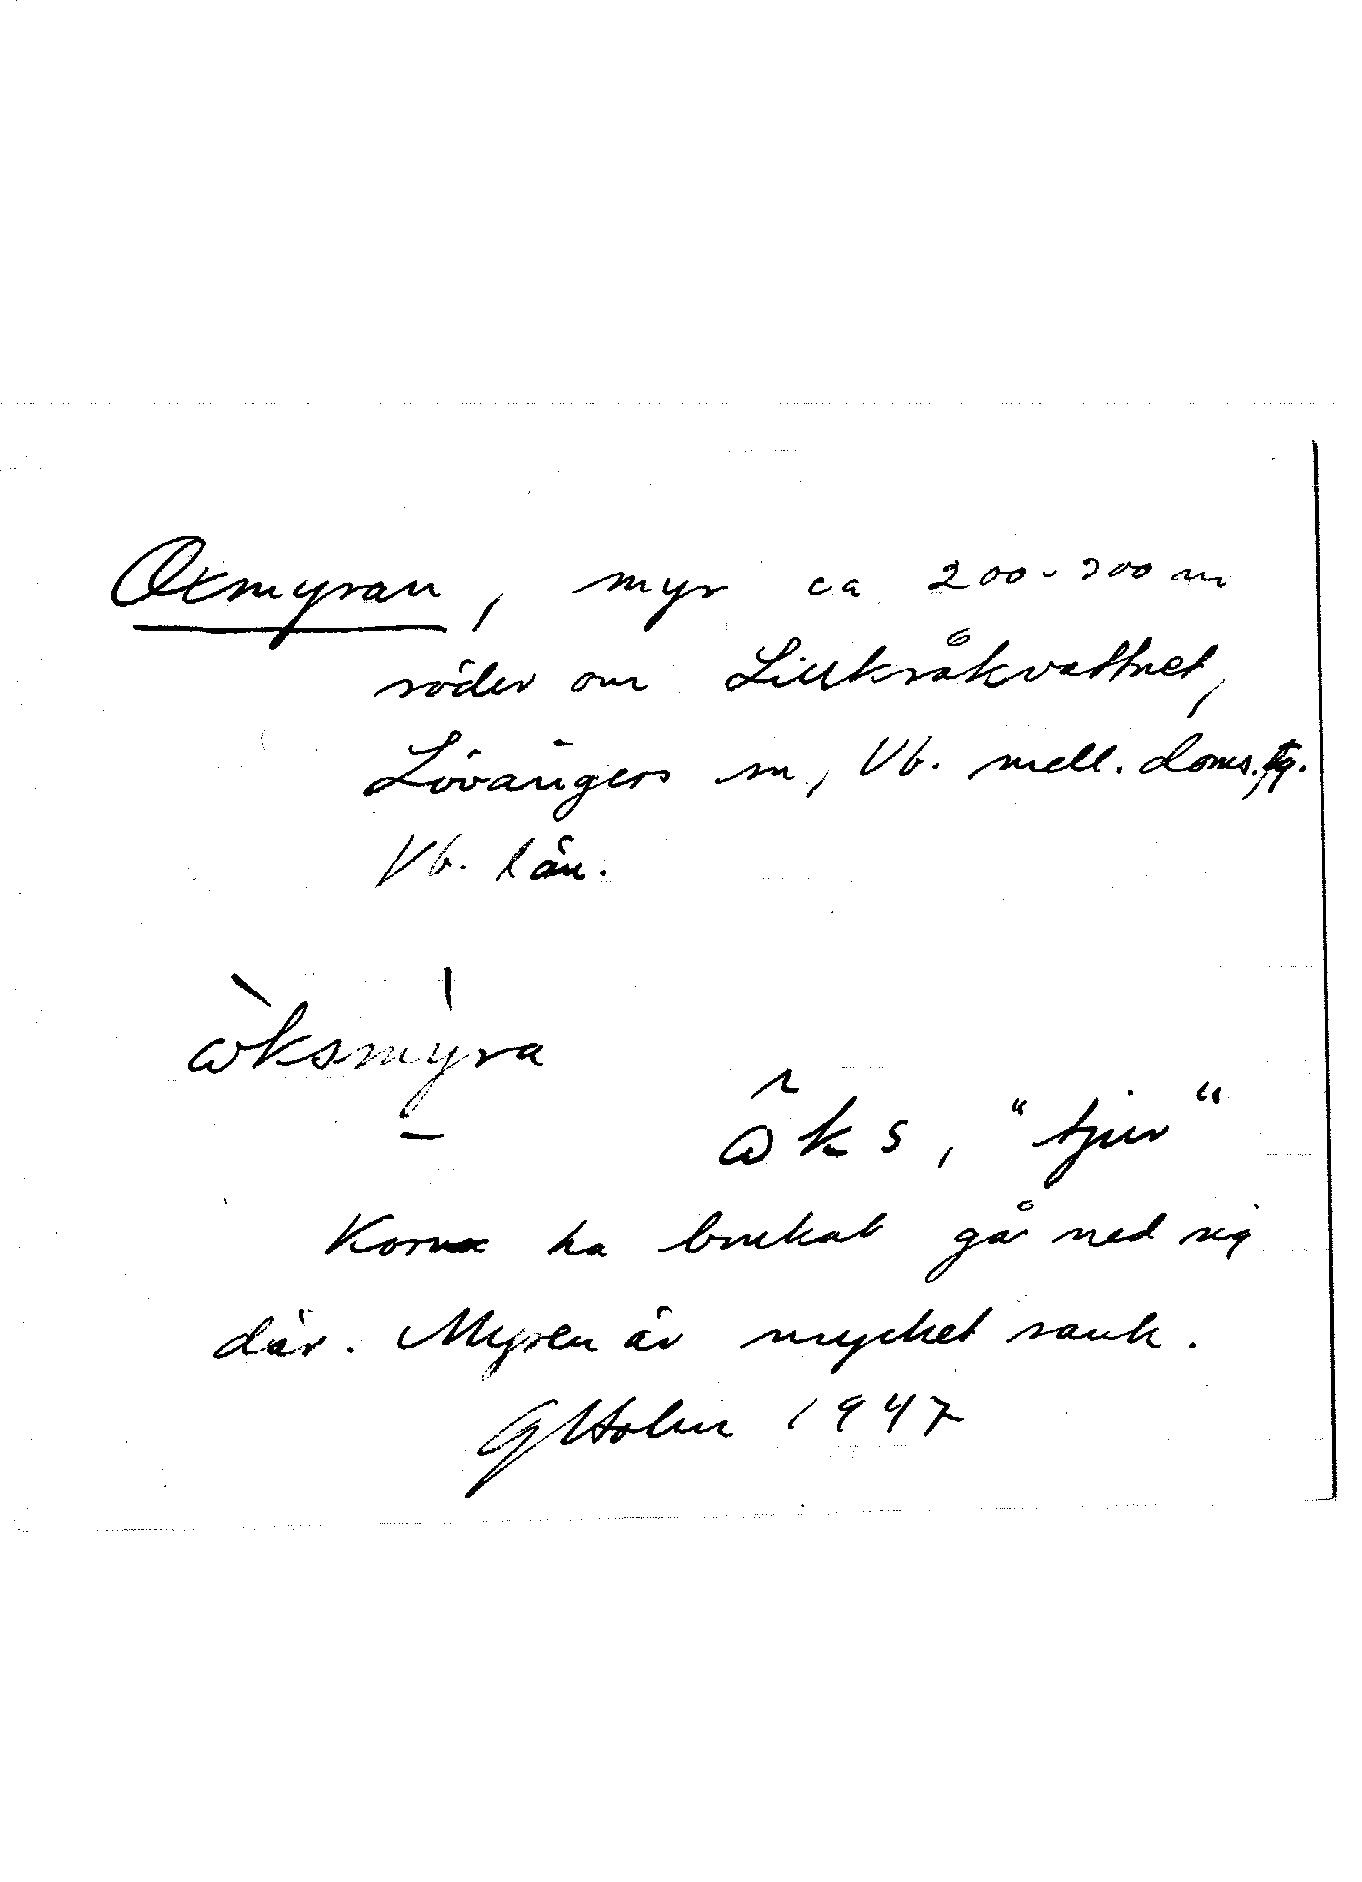 Oxmyran, myr ca 200-300 m
söder om Lillkråkvattnet,
Lövångers sn, Vb. mell. doms. tg.
Vb. län.
ωksmyra
ωks, "tjur"
Korna ha brukat gå ned sig
där. Myren är mycket sank.
G Holm 1947